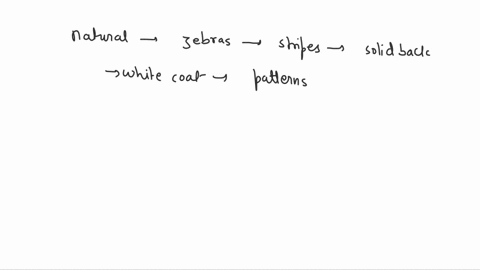 natural → zebras → stripes → solid back
→ white coat → patterns